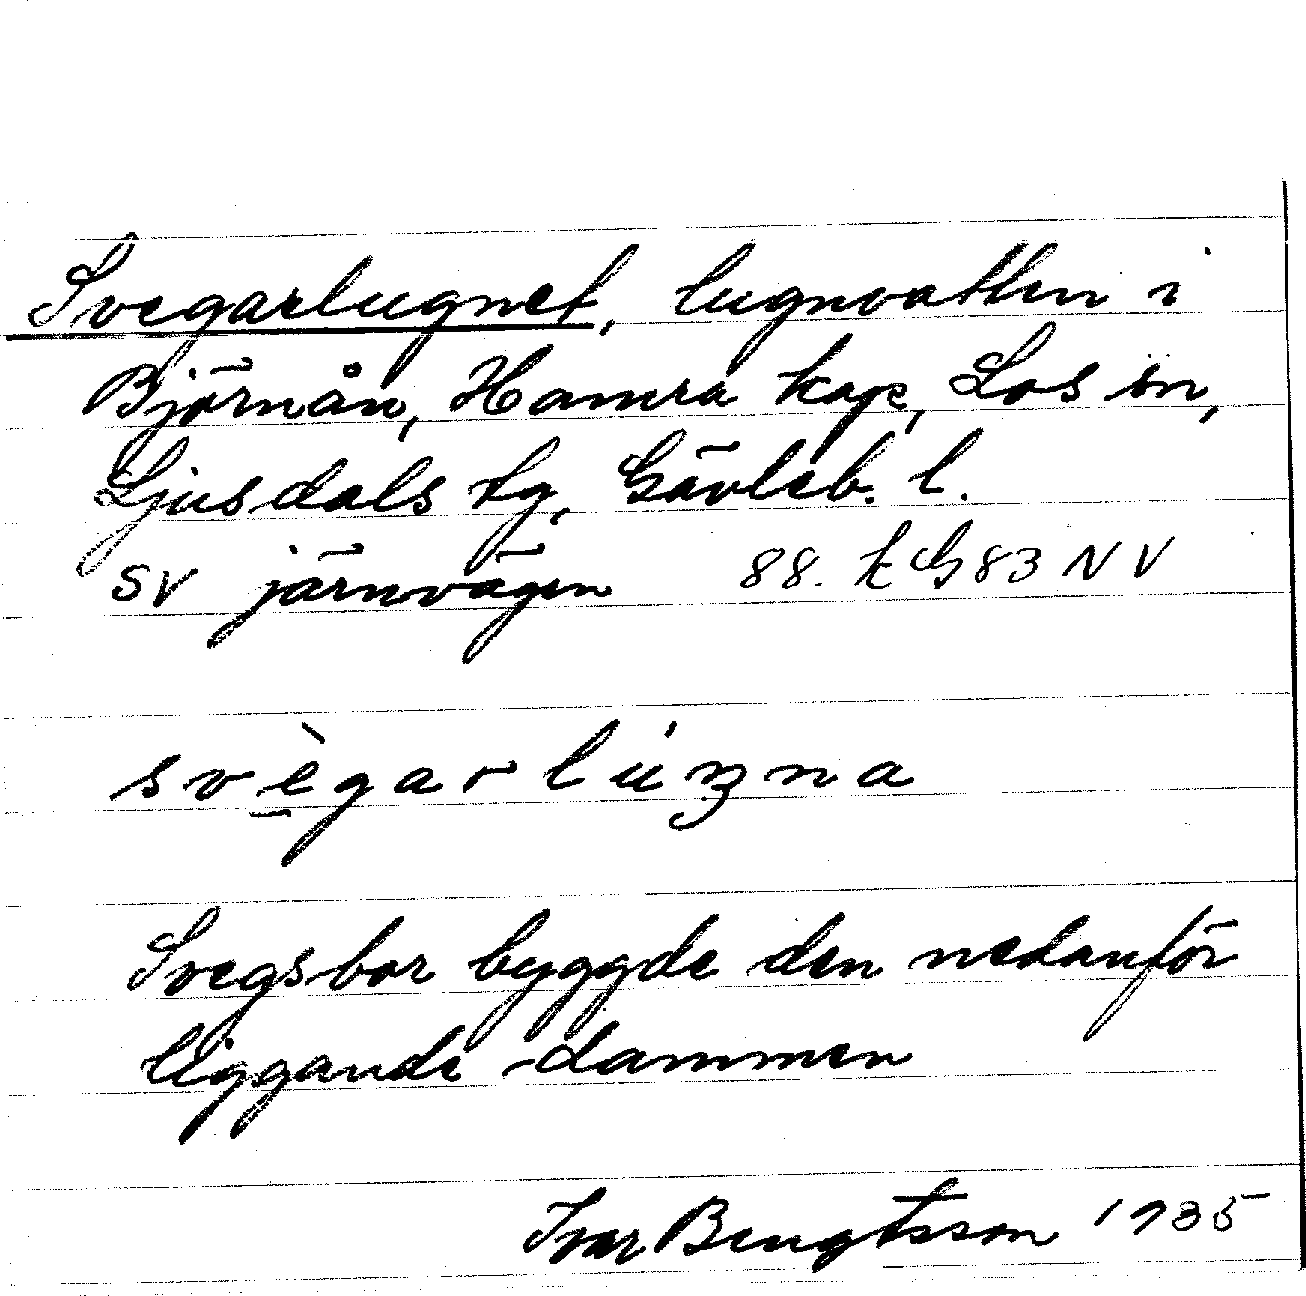 Svegarlugnet, lugnvatten i
Björnån, Hamra kap, Los sn,
Ljusdals tg, Gävleb. l.
SV järnvägen 88. k G 83 NV
svègarlúŋna
Svegsbor byggde den nedanför
liggande dammen
Ivar Bengtsson 1935